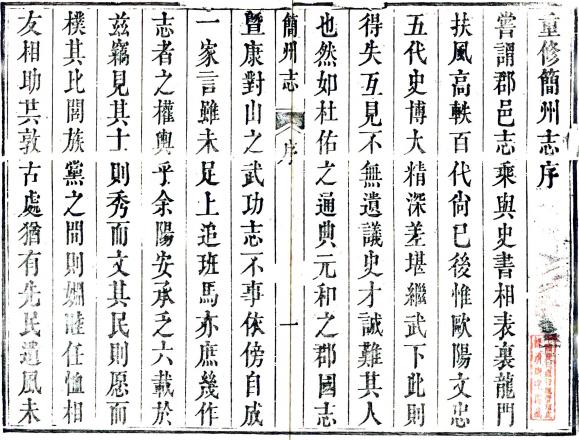 重修簡州志序
嘗謂郡邑志乘與史書相表裏龍門
扶風高軼百代尙已後惟歐陽文忠
五代史博大精深差堪繼武下此則
得失互見不無遺議史才誠難其人
也然如杜佑之通典元和之郡國志
簡州志
序
一
曁康對山之武功志不事依傍自成
一家言雖未足上追班馬亦庶幾作
志者之權輿乎余陽安承乏六載於
兹竊見其士則秀而文其民則愿而
樸其比閭族黨之間則婣睦任恤相
友相助其敦古處猶有先民遺風未